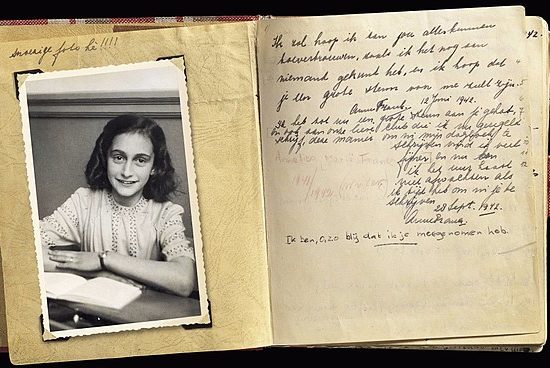 snoezige foto hè!!!!
42.
Ik zal hoop ik aan jou alles kunnen
toevertrouwen, zoals ik het nog aan
niemand gekund heb, en ik hoop dat
je een grote steun voor me zult zijn.
Anne Frank. 12 Juni 1942.
Ik heb tot nu een grote steun aan je gehad,
en ook aan onze lieve club die ik nu geregeld
schrijf, deze manier om in mijn dagboek te
schrijven vind ik veel
fijner en nu kan
ik het uur haast
niet afwachten als
ik tijd heb om in je te
schrijven.
28 Sept. 1942.
Anne Frank.
Ik ben, o, zo blij dat ik je meegenomen heb.